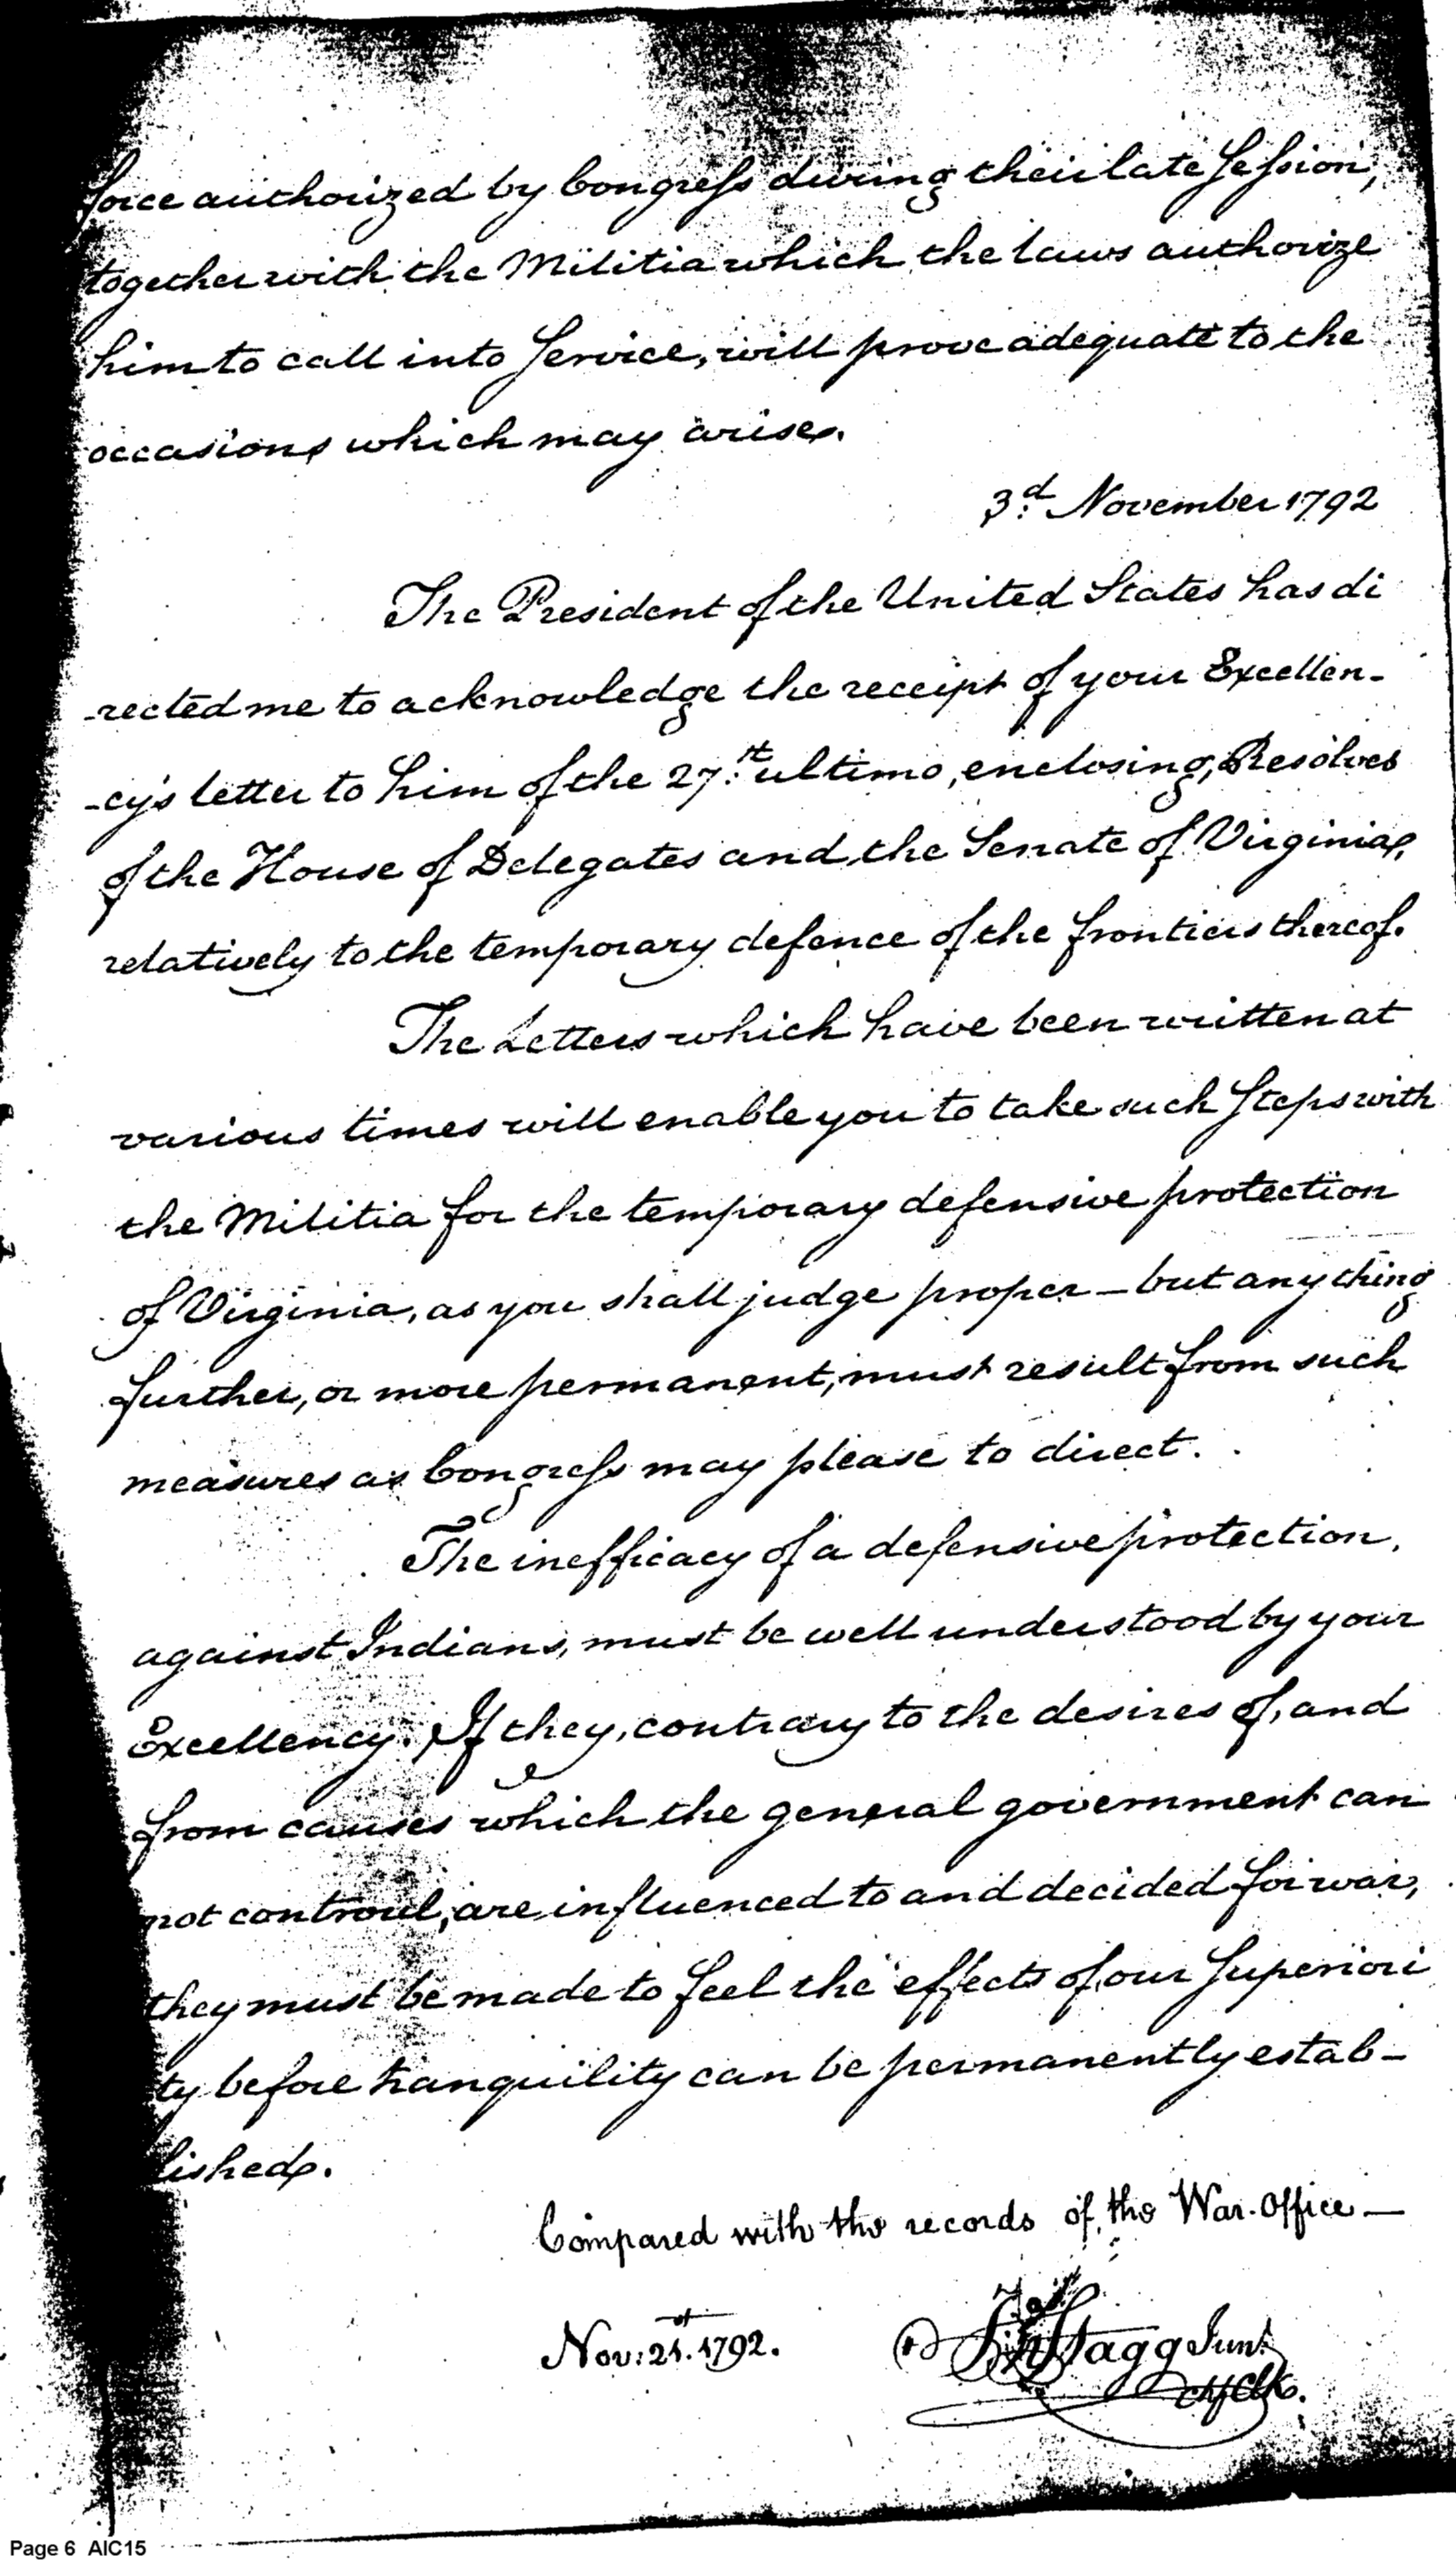 force authorized by Congress during their late Session,
together with the Militia which the laws authorize
him to call into Service, will prove adequate to the
occasions which may arise.
3d. November 1792
The President of the United States has di
-rected me to acknowledge the receipt of your Excellen-
-cy's letter to him of the 27.th ultimo, enclosing, Resolves
of the House of Delegates and the Senate of Virginia,
relatively to the temporary defence of the frontiers thereof.
The Letters which have been written at
various times will enable you to take such Steps with
the Militia for the temporary defensive protection
of Virginia, as you shall judge proper — but any thing
further, or more permanent, must result from such
measures as Congress may please to direct.
The inefficacy of a defensive protection,
against Indians, must be well understood by your
Excellency. If they, contrary to the desires of, and
from causes which the general government can
not controul, are influenced to and decided for war,
they must be made to feel the effects of our Superiori
ty before tranquility can be permanently estab-
lished.
Compared with the records of the War Office —
Nov: 21st. 1792.
Stagg Junr.
Clk.
Page 6 AIC15